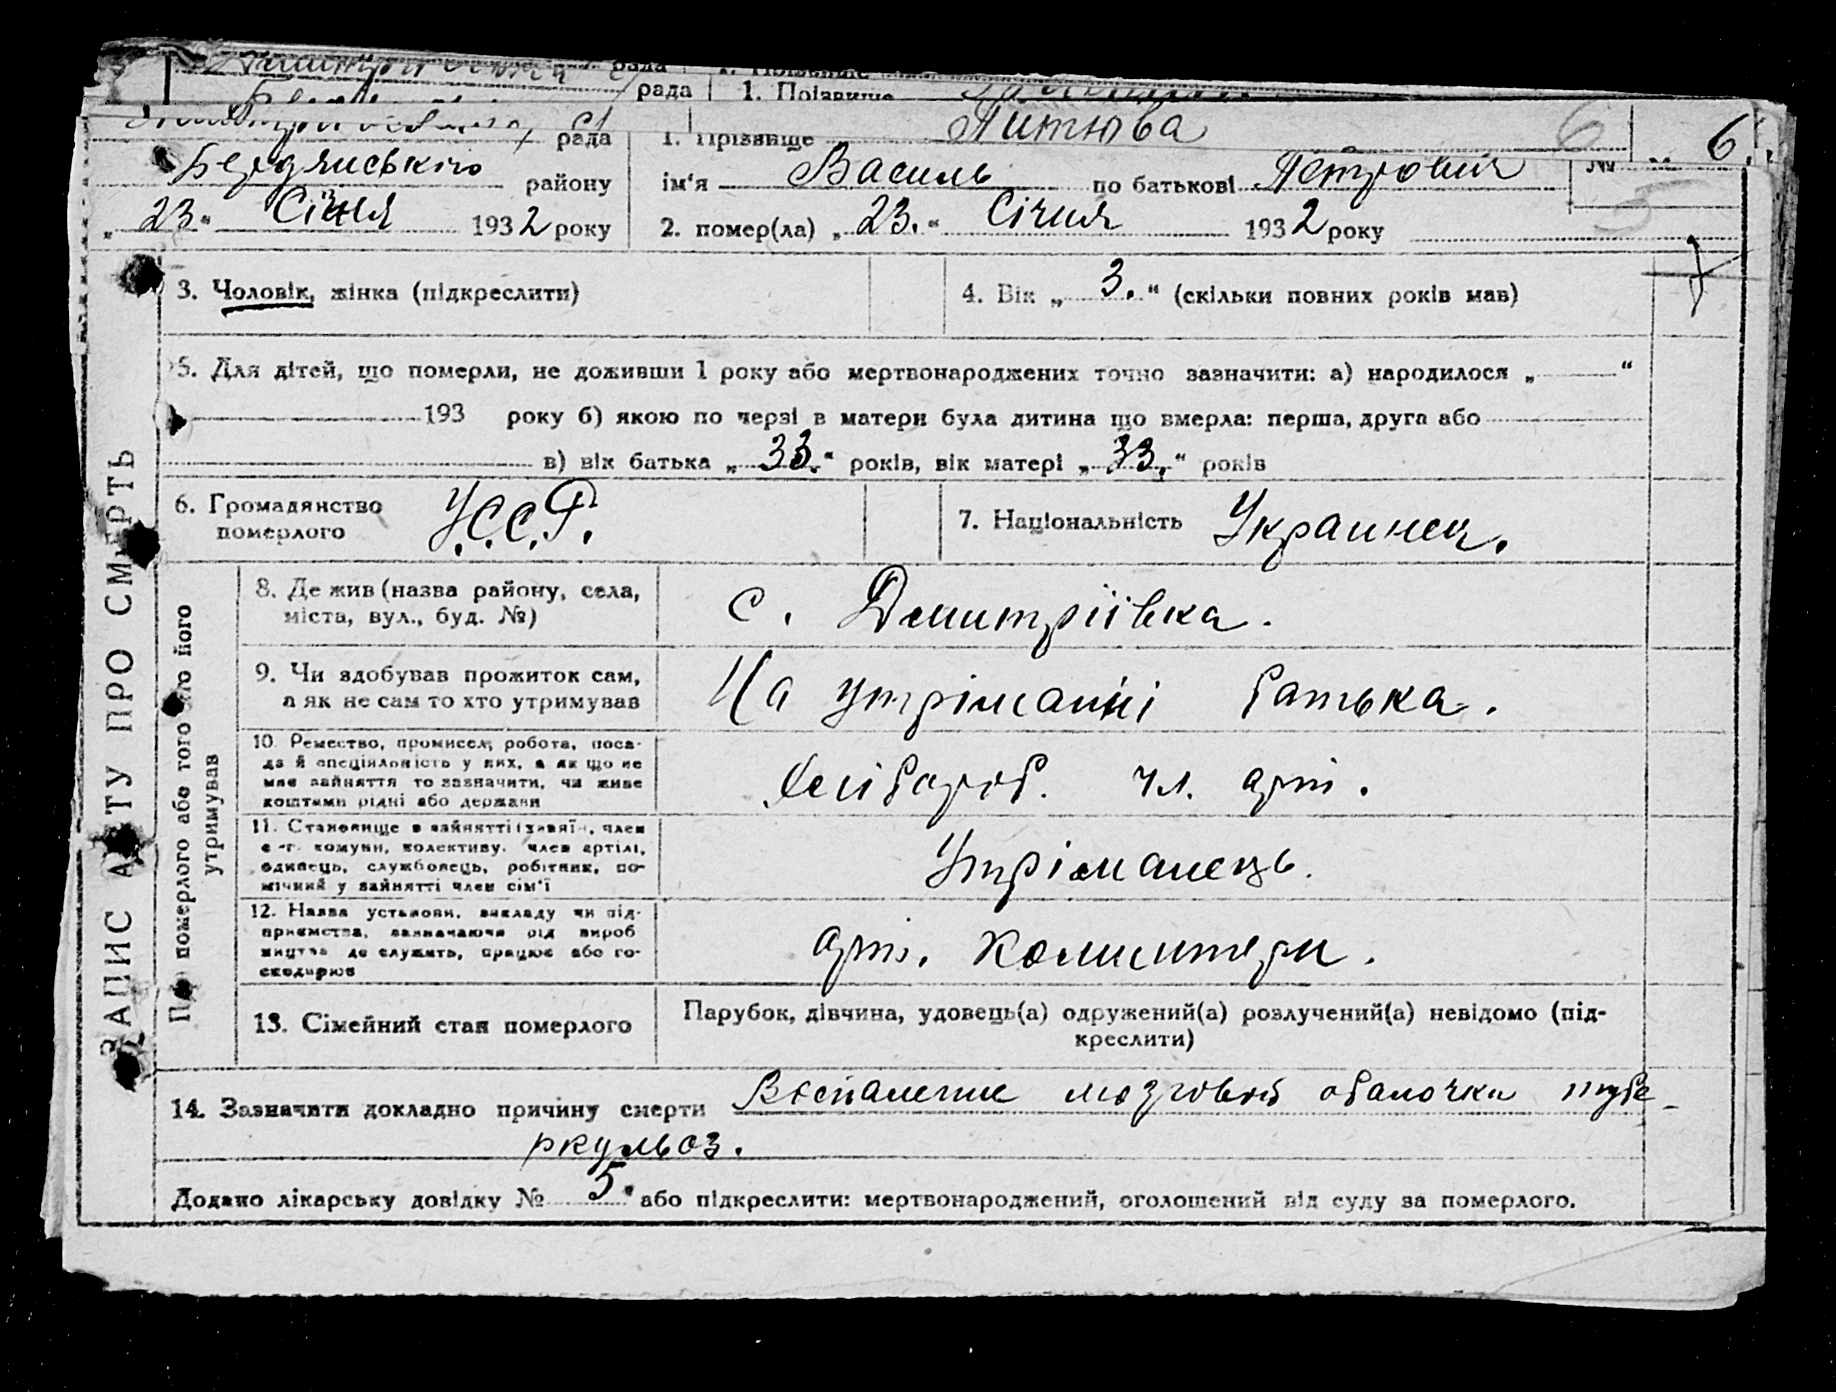 рада 1. Прізвище
рада 1. Прізвище Питюва 6 6.
Бердянського району ім'я Василь по батькові Петрович №
„ 23 " Січня 1932 року 2. помер(ла) „ 23. " Січня 1932 року
3. Чоловік, жінка (підкреслити) 4. Вік „ 3. " (скільки повних років мав)
5. Для дітей, що померли, не доживши 1 року або мертвонароджених точно зазначити: а) народилося „ "
193 року б) якою по черзі в матери була дитина що вмерла: перша, друга або
в) вік батька „ 33. " років, вік матері „ 33. " років
6. Громадянство померлого У.С.С.Р. 7. Національність Украинец.
ЗАПИС АКТУ ПРО СМЕРТЬ
Про померлого або того хто його утримував
8. Де жив (назва району, села,
міста, вул., буд. №) с. Дмитріївка.
9. Чи здобував прожиток сам,
а як не сам то хто утримував На утріманні батька.
10. Ремество, промисел, робота, поса-
да й спеціяльність у них, а як що не
має зайняття то зазначити, чи живе
коштами рідні або держави Хлібороб. чл. арт.
11. Становище в зайнятті (хазяїн, член
с.-г. комуни, колективу, член артілі,
одинець, службовець, робітник, по-
мічний у зайнятті член сім'ї Утріманець.
12. Назва установи, закладу чи під-
приємства, зазначаючи рід вироб
ництва де служить, працює або го-
сподарює арт. Коминтерн.
13. Сімейний стан померлого Парубок, дівчина, удовець(а) одружений(а) розлучений(а) невідомо (під-
креслити)
14. Зазначити докладно причину смерти Воспаление мозговой оболочки тубе-
ркульоз.
Додано лікарську довідку № 5. або підкреслити: мертвонароджений, оголошений від суду за померлого.